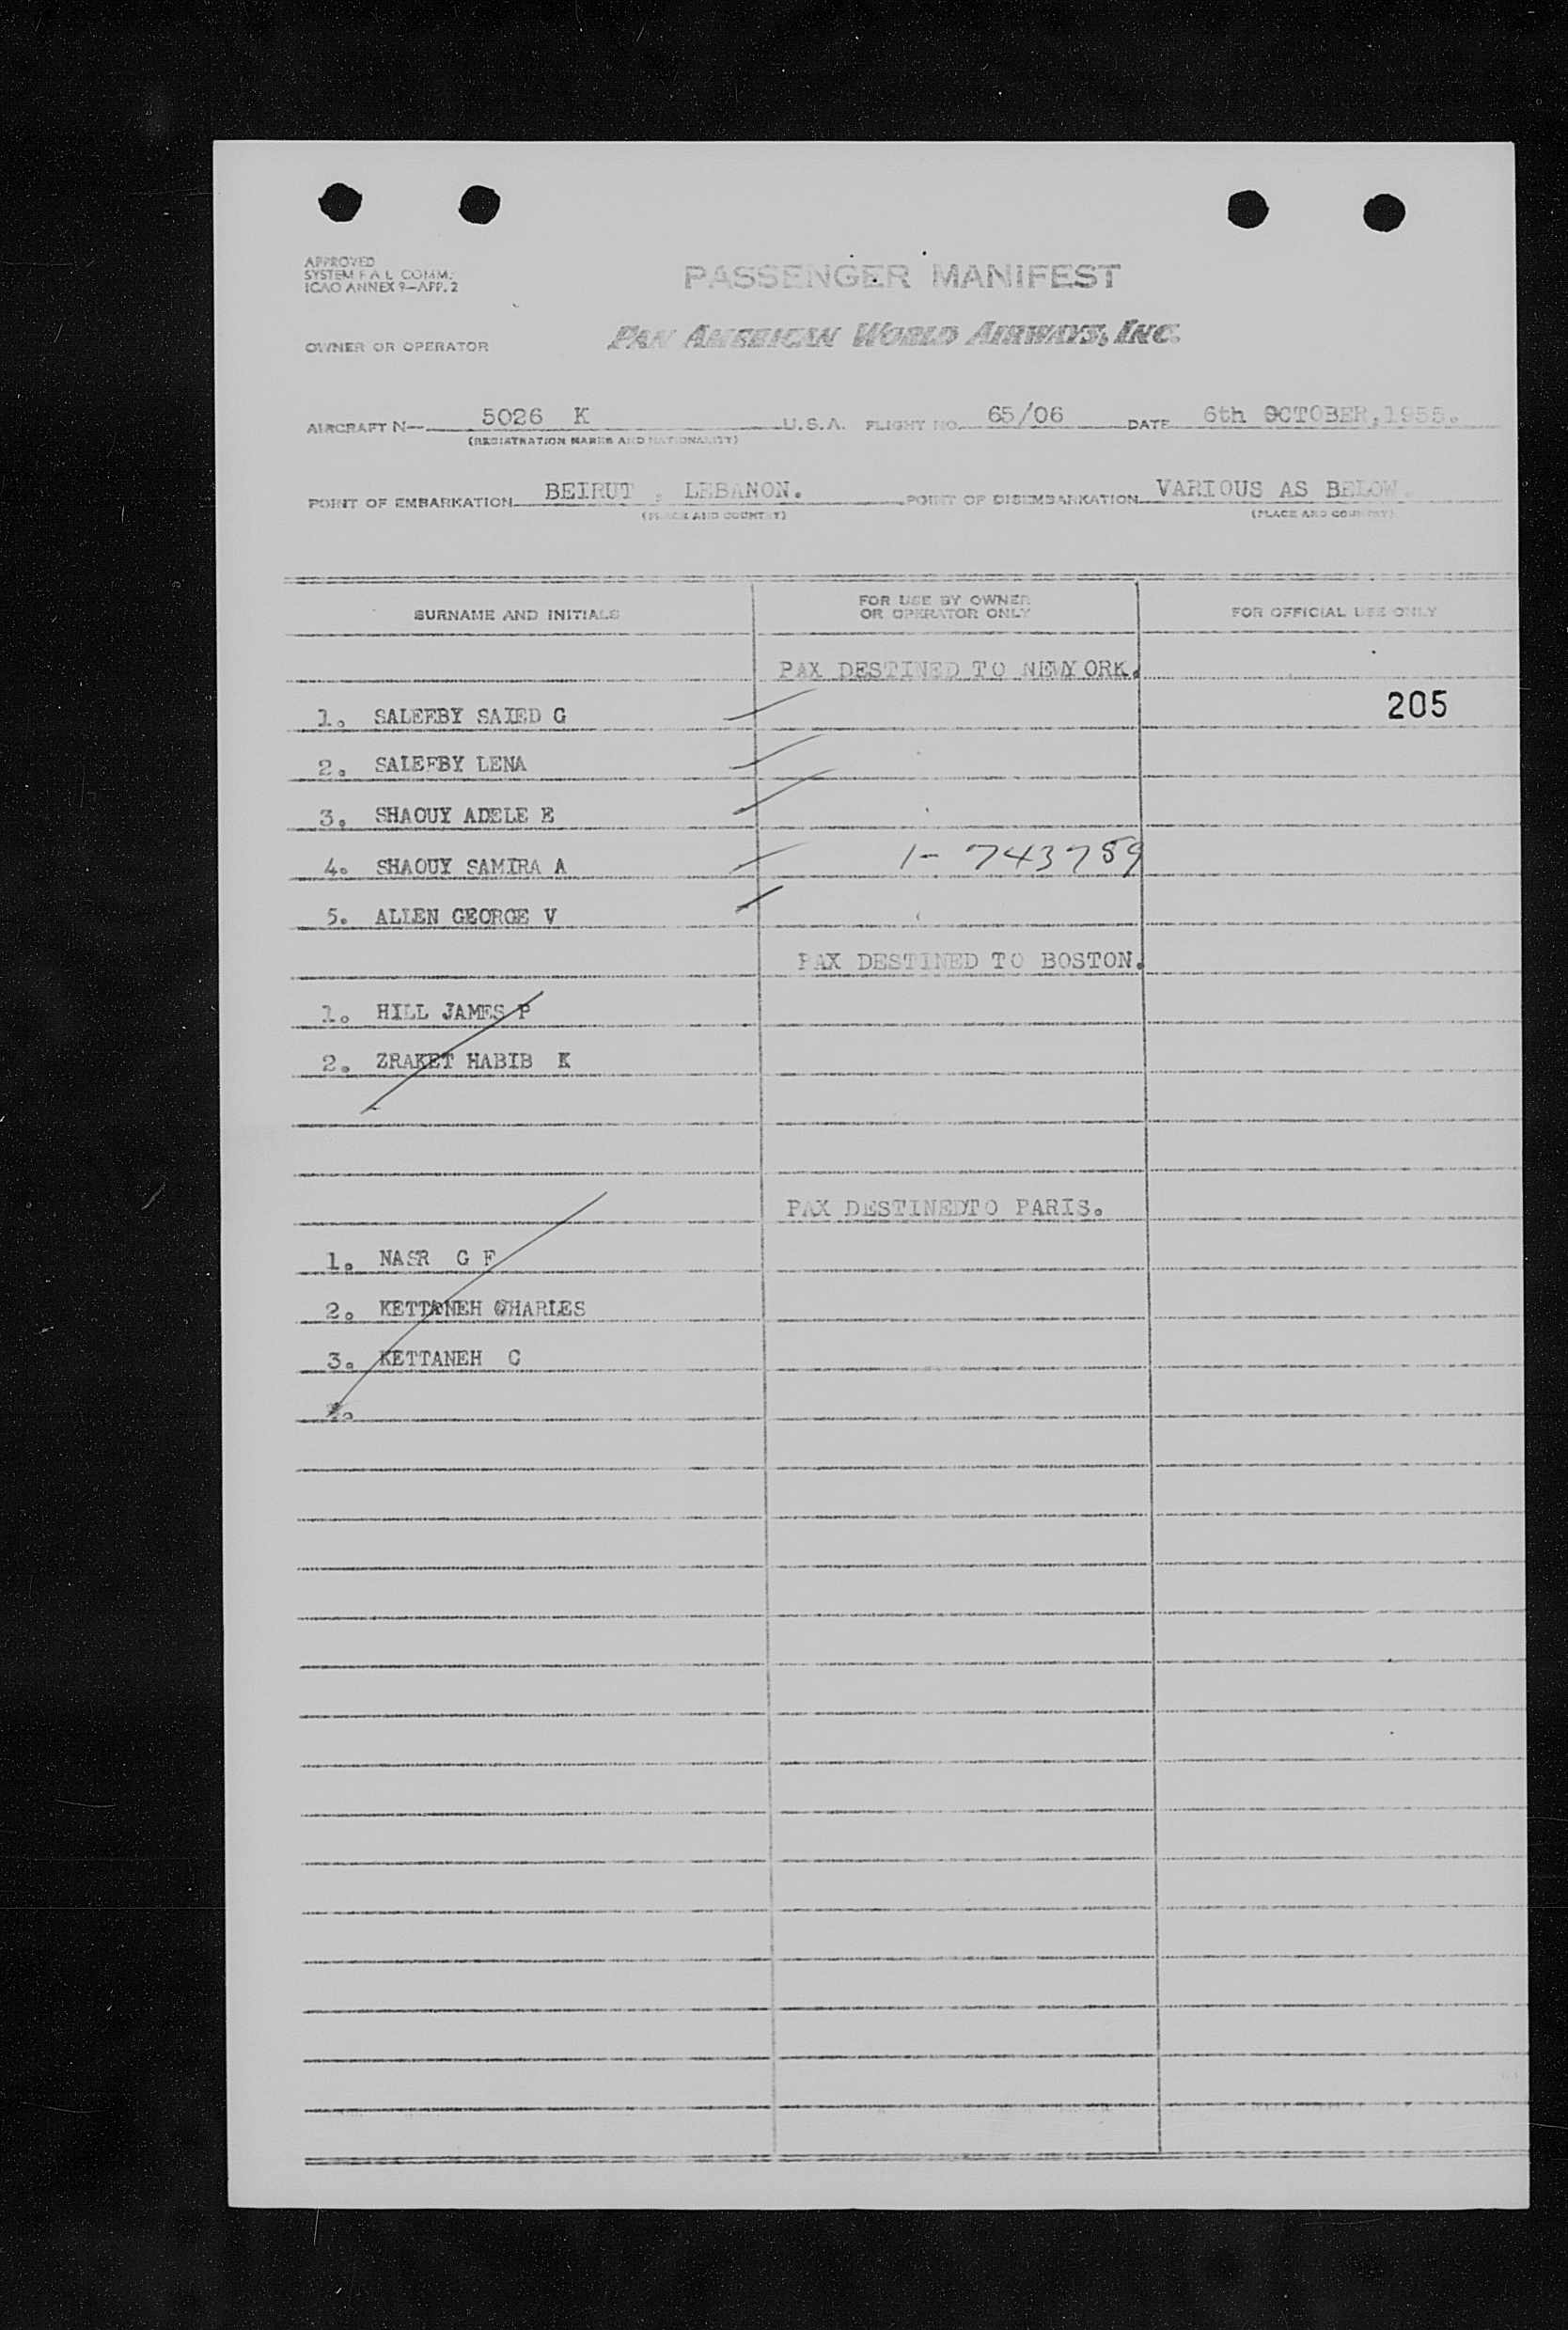 APPROVED
SYSTEM F A L COMM.
ICAO ANNEX 9—APP. 2
PASSENGER MANIFEST
OWNER OR OPERATOR PAN AMERICAN WORLD AIRWAYS, INC.
AIRCRAFT N— 5026 K U.S.A. FLIGHT NO. 65/06 DATE 6th OCTOBER,1955.
(REGISTRATION MARKS AND NATIONALITY)
POINT OF EMBARKATION BEIRUT , LEBANON. POINT OF DISEMBARKATION VARIOUS AS BELOW.
(PLACE AND COUNTRY) (PLACE AND COUNTRY)
SURNAME AND INITIALS FOR USE BY OWNER OR OPERATOR ONLY FOR OFFICIAL USE ONLY
PAX DESTINED TO NEWYORK.
1. SALEEBY SAIED G 205
2. SALEEBY LENA
3. SHAOUY ADELE E
4. SHAOUY SAMIRA A 1- 743789
5. ALLEN GEORGE V
PAX DESTINED TO BOSTON.
1. HILL JAMES P
2. ZRAKET HABIB K
PAX DESTINEDTO PARIS.
1. NASR G F
2. KETTANEH CHARLES
3. KETTANEH C